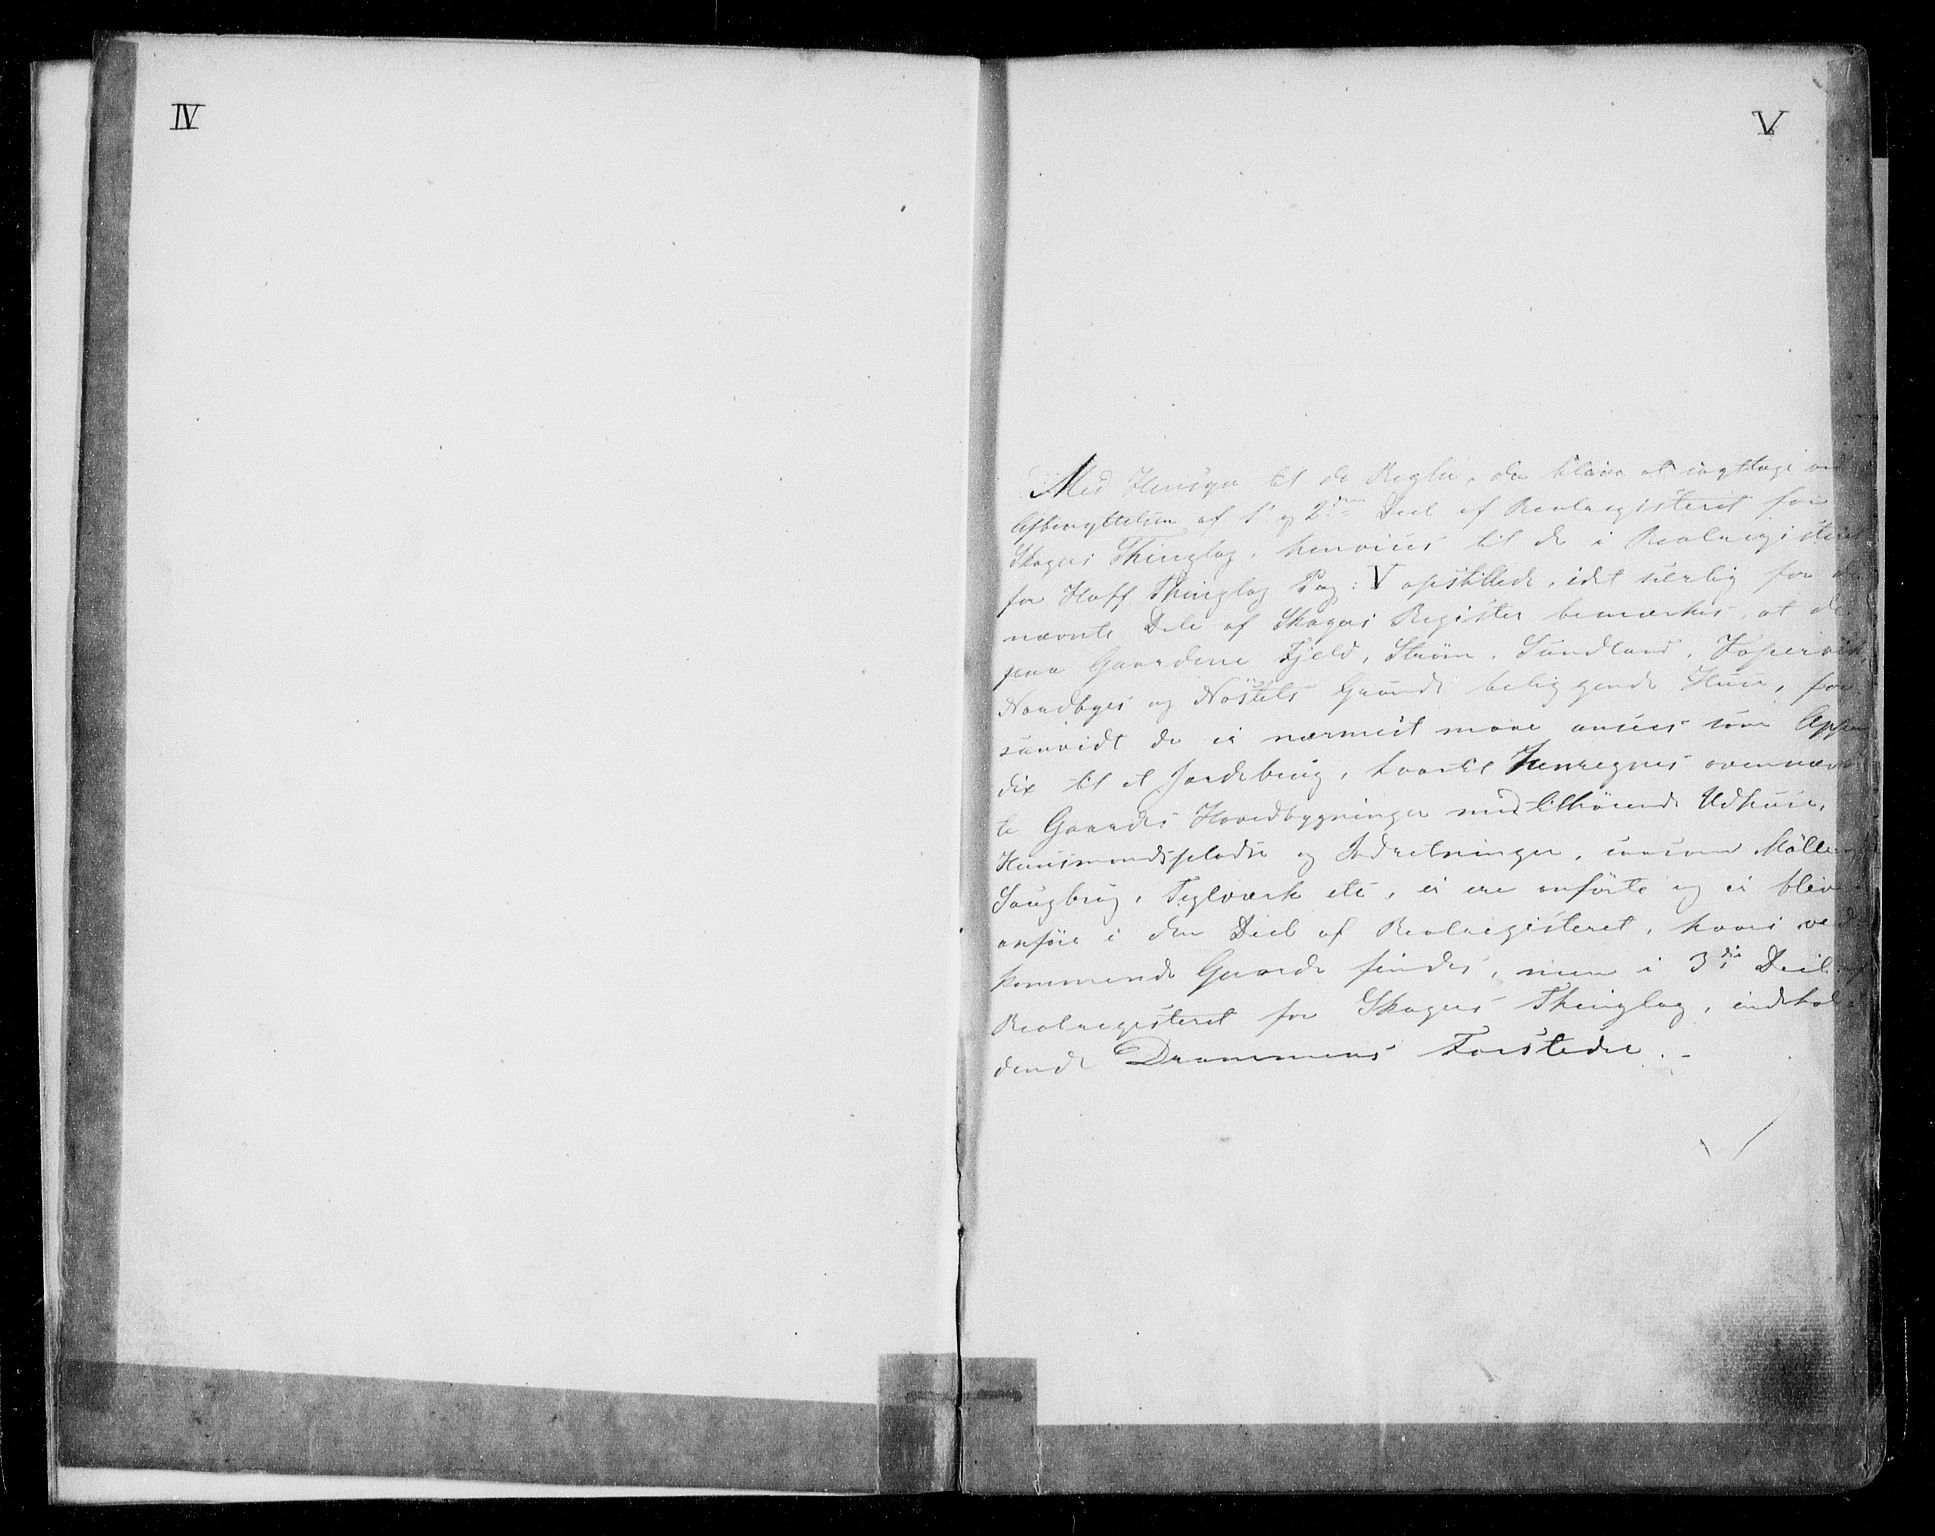 IV
V
Med Hensyn til de Regler, der blive at iagttage ved
Afbenyttelsen af 1. og 2den Deel af Realregisteret for
Skogers Thinglag, henvises til de i Realregisteret
for Hoff Thinglag Pag: V opstillede, idet særlig for de
nævnte Dele af Skogers Register bemærkes, at de
paa Gaardene Fjeld, Strøm, Sundland, Kopervik,
Nordbyes og Nøstets Grunde beliggende Huse, for
saavidt de ei nærmest maae ansees som Appen
dix til et Jordebrug, hvortil henregnes ovennævn
te Gaardes Hovedbygninger med tilhørende Udhuse,
Huusmandspladse og Indretninger, saasom Mølle
Saugbrug, Teglværk etc, ei ere anførte og ei blive
anføre i den Deel af Realregisteret, hvori ved
kommende Gaarde findes, men i 3die Deel af
Realregisteret for Skogers Thinglag, indehol
dende Drammens Forstæder.